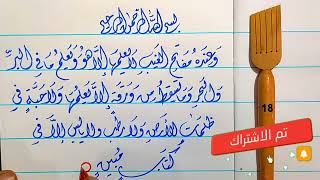 بسم الله الرحمن الرحيم
وعنده مفاتح الغيب لا يعلمها إلا هو ويعلم ما في البر
والبحر وما تسقط من ورقة إلا يعلمها ولا حبة في
ظلمات الأرض ولا رطب ولا يابس إلا في
كتاب مبين
18
تم الاشتراك